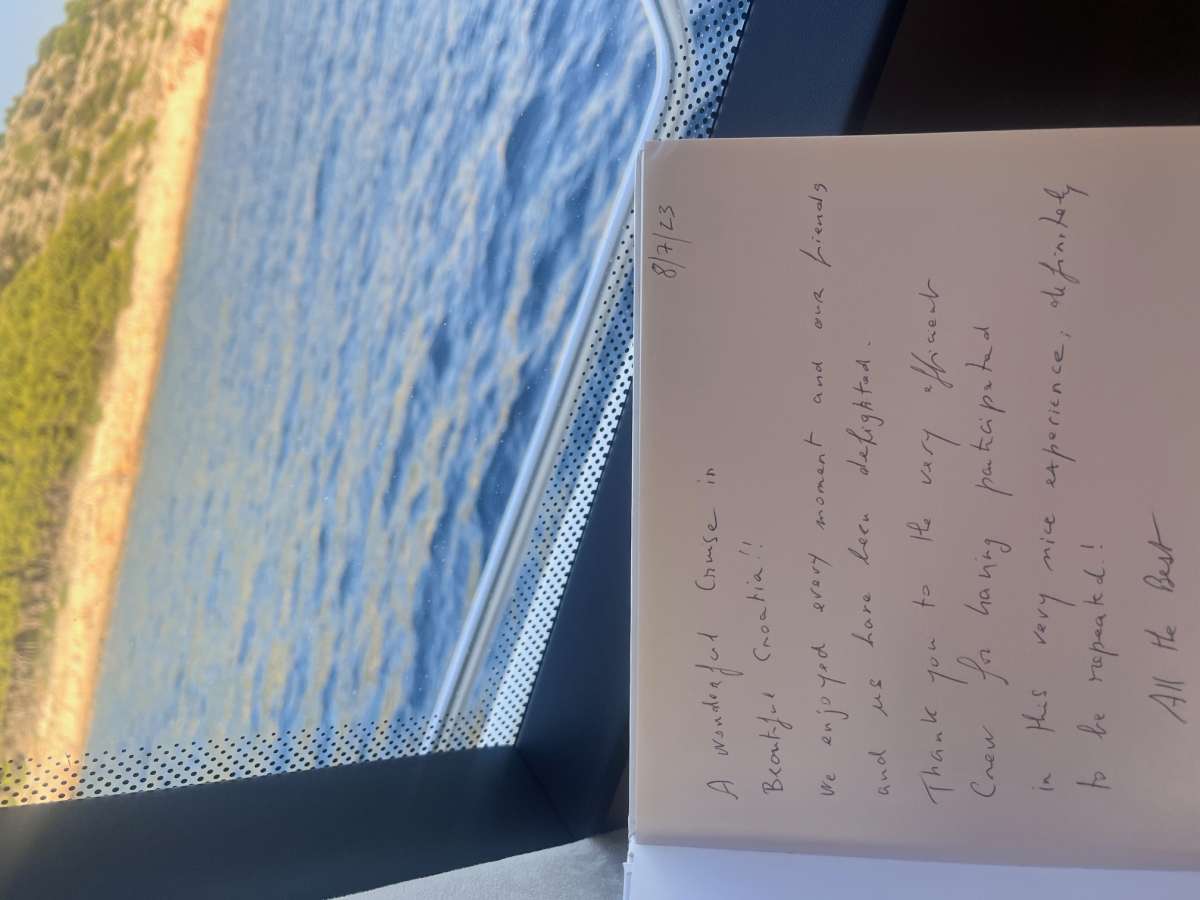 8/7/23
A wonderful Cruise in
Beautiful Croatia!!
We enjoyed every moment and our friends
and us have been delighted.
Thank you to the very efficient
Crew for having participated
in this very nice experience, definitely
to be repeated!!
All the Best